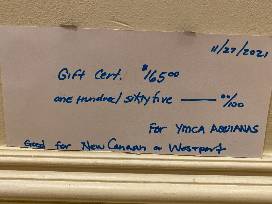 11/27/2021
Gift Cert. $165⁰⁰
one Hundred sixty five —— ⁰⁰/100
For YMCA AQUIANAS
Good for New Canaan or Westport